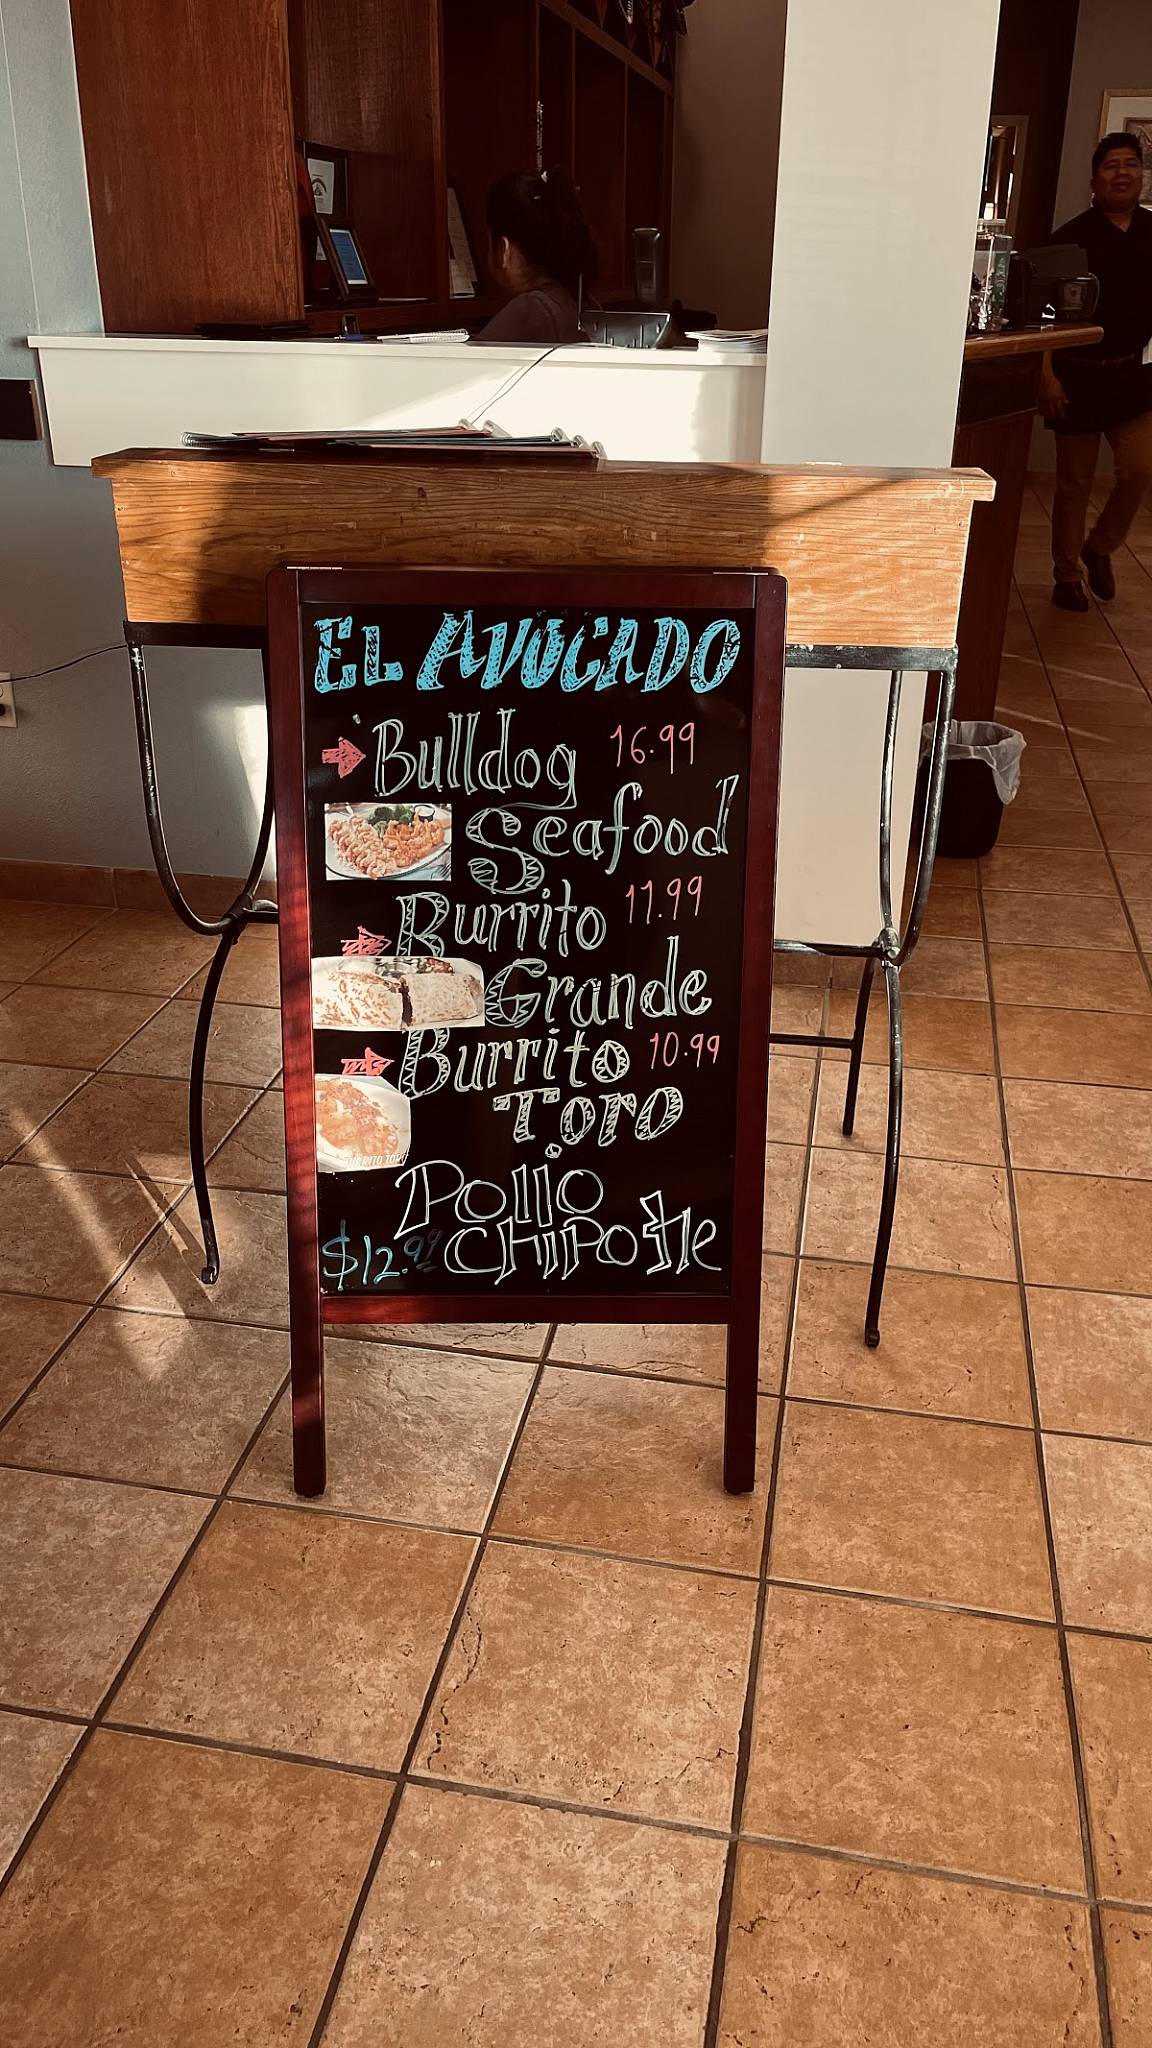 EL AVOCADO
Bulldog 16.99
Seafood
Burrito 11.99
Grande
Burrito 10.99
Toro
BURRITO TORO
Pollo
$12.99 CHIPOtle